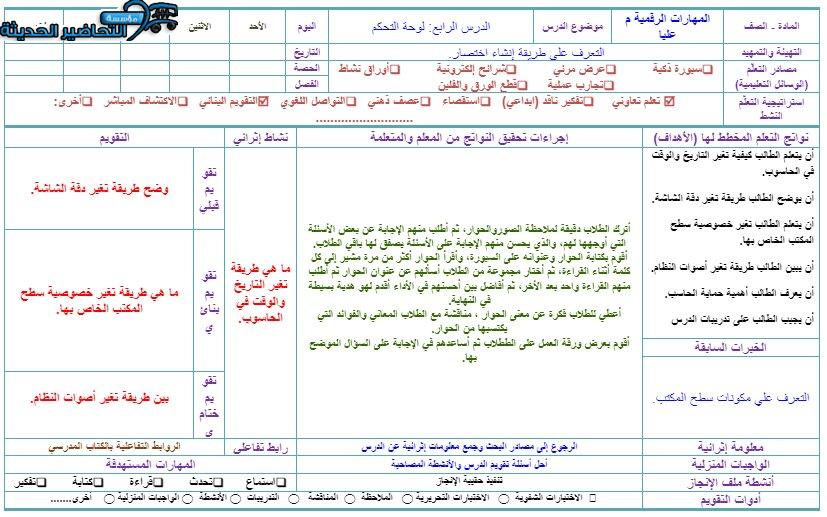 مؤسسة
التحاضير الحديثة
المادة - الصف
المهارات الرقمية م عليا
موضوع الدرس
الدرس الرابع: لوحة التحكم
اليوم
الأحد
الاثنين
التهيئة والتمهيد
التعرف على طريقة إنشاء اختصار.
التاريخ
مصادر التعلم (الوسائل التعليمية)
❑سبورة ذكية ❑عرض مرئي ❑شرائح إلكترونية ❑أوراق نشاط
❑تجارب عملية ❑قطع الورق والفلين
الحصة
الفصل
استراتيجية التعلم النشط
☑ تعلم تعاوني ❑تفكير ناقد (ابداعي) ❑استقصاء ❑عصف ذهني ❑التواصل اللغوي ☑التقويم البنائي ❑الاكتشاف المباشر ❑أخرى:
..........................
نواتج التعلم المخطط لها (الأهداف)
إجراءات تحقيق النواتج من المعلم والمتعلمة
نشاط إثرائي
التقويم
أن يتعلم الطالب كيفية تغير التاريخ والوقت في الحاسوب.
أن يوضح الطالب طريقة تغير دقة الشاشة.
أن يتعلم الطالب تغير خصوصية سطح المكتب الخاص بها.
أن يبين الطالب طريقة تغير أصوات النظام.
أن يعرف الطالب أهمية حماية الحاسب.
أن يجيب الطالب على تدريبات الدرس
الخبرات السابقة
التعرف علي مكونات سطح المكتب.
أترك الطلاب دقيقة لملاحظة الصوروالحوار، ثم أطلب منهم الإجابة عن بعض الأسئلة
التي أوجهها لهم، والذي يحسن منهم الإجابة على الأسئلة يصفق لها باقي الطلاب.
أقوم بكتابة الحوار وعنوانه على السبورة، وأقرأ الحوار أكثر من مرة مشير إلي كل
كلمة أثناء القراءة، ثم أختار مجموعة من الطلاب أسألهم عن عنوان الحوار ثم أطلب
منهم القراءة واحد بعد الأخر، ثم أفاضل بين أحسنهم في الأداء أقدم لهو هدية بسيطة
في النهاية.
أعطي للطلاب فكرة عن معنى الحوار ، مناقشة مع الطلاب المعاني والفوائد التي
يكتسبها من الحوار.
أقوم بعرض ورقة العمل على الططلاب ثم أساعدهم في الإجابة على السؤال الموضح
بها.
ما هي طريقة تغير التاريخ والوقت في الحاسوب.
تقويم قبلي
وضح طريقة تغير دقة الشاشة.
تقويم بنائي
ما هي طريقة تغير خصوصية سطح المكتب الخاص بها.
تقويم ختامي
بين طريقة تغير أصوات النظام.
معلومة إثرائية
الرجوع إلى مصادر البحث وجمع معلومات إثرائية عن الدرس
رابط تفاعلي
الروابط التفاعلية بالكتاب المدرسي
الواجبات المنزلية
أحل أسئلة تقويم الدرس والأنشطة المصاحبة
المهارات المستهدفة
أنشطة ملف الإنجاز
تنفيذ حقيبة الإنجاز
❑استماع ❑تحدث ❑قراءة ❑كتابة ❑تفكير
أدوات التقويم
الاختبارات الشفوية ◯ الاختبارات التحريرية ◯ الملاحظة ◯ المناقشة ◯ التدريبات ◯ الأنشطة ◯ الواجبات المنزلية ◯ أخرى.......